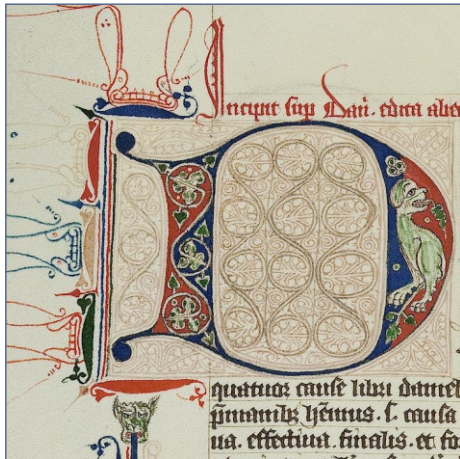 Incipit sup Dañ. edita abe
quatuor cause libri daniel
p̃manibꝫ h̃emus. s. causa
ua. effectiua. finalis. et fo